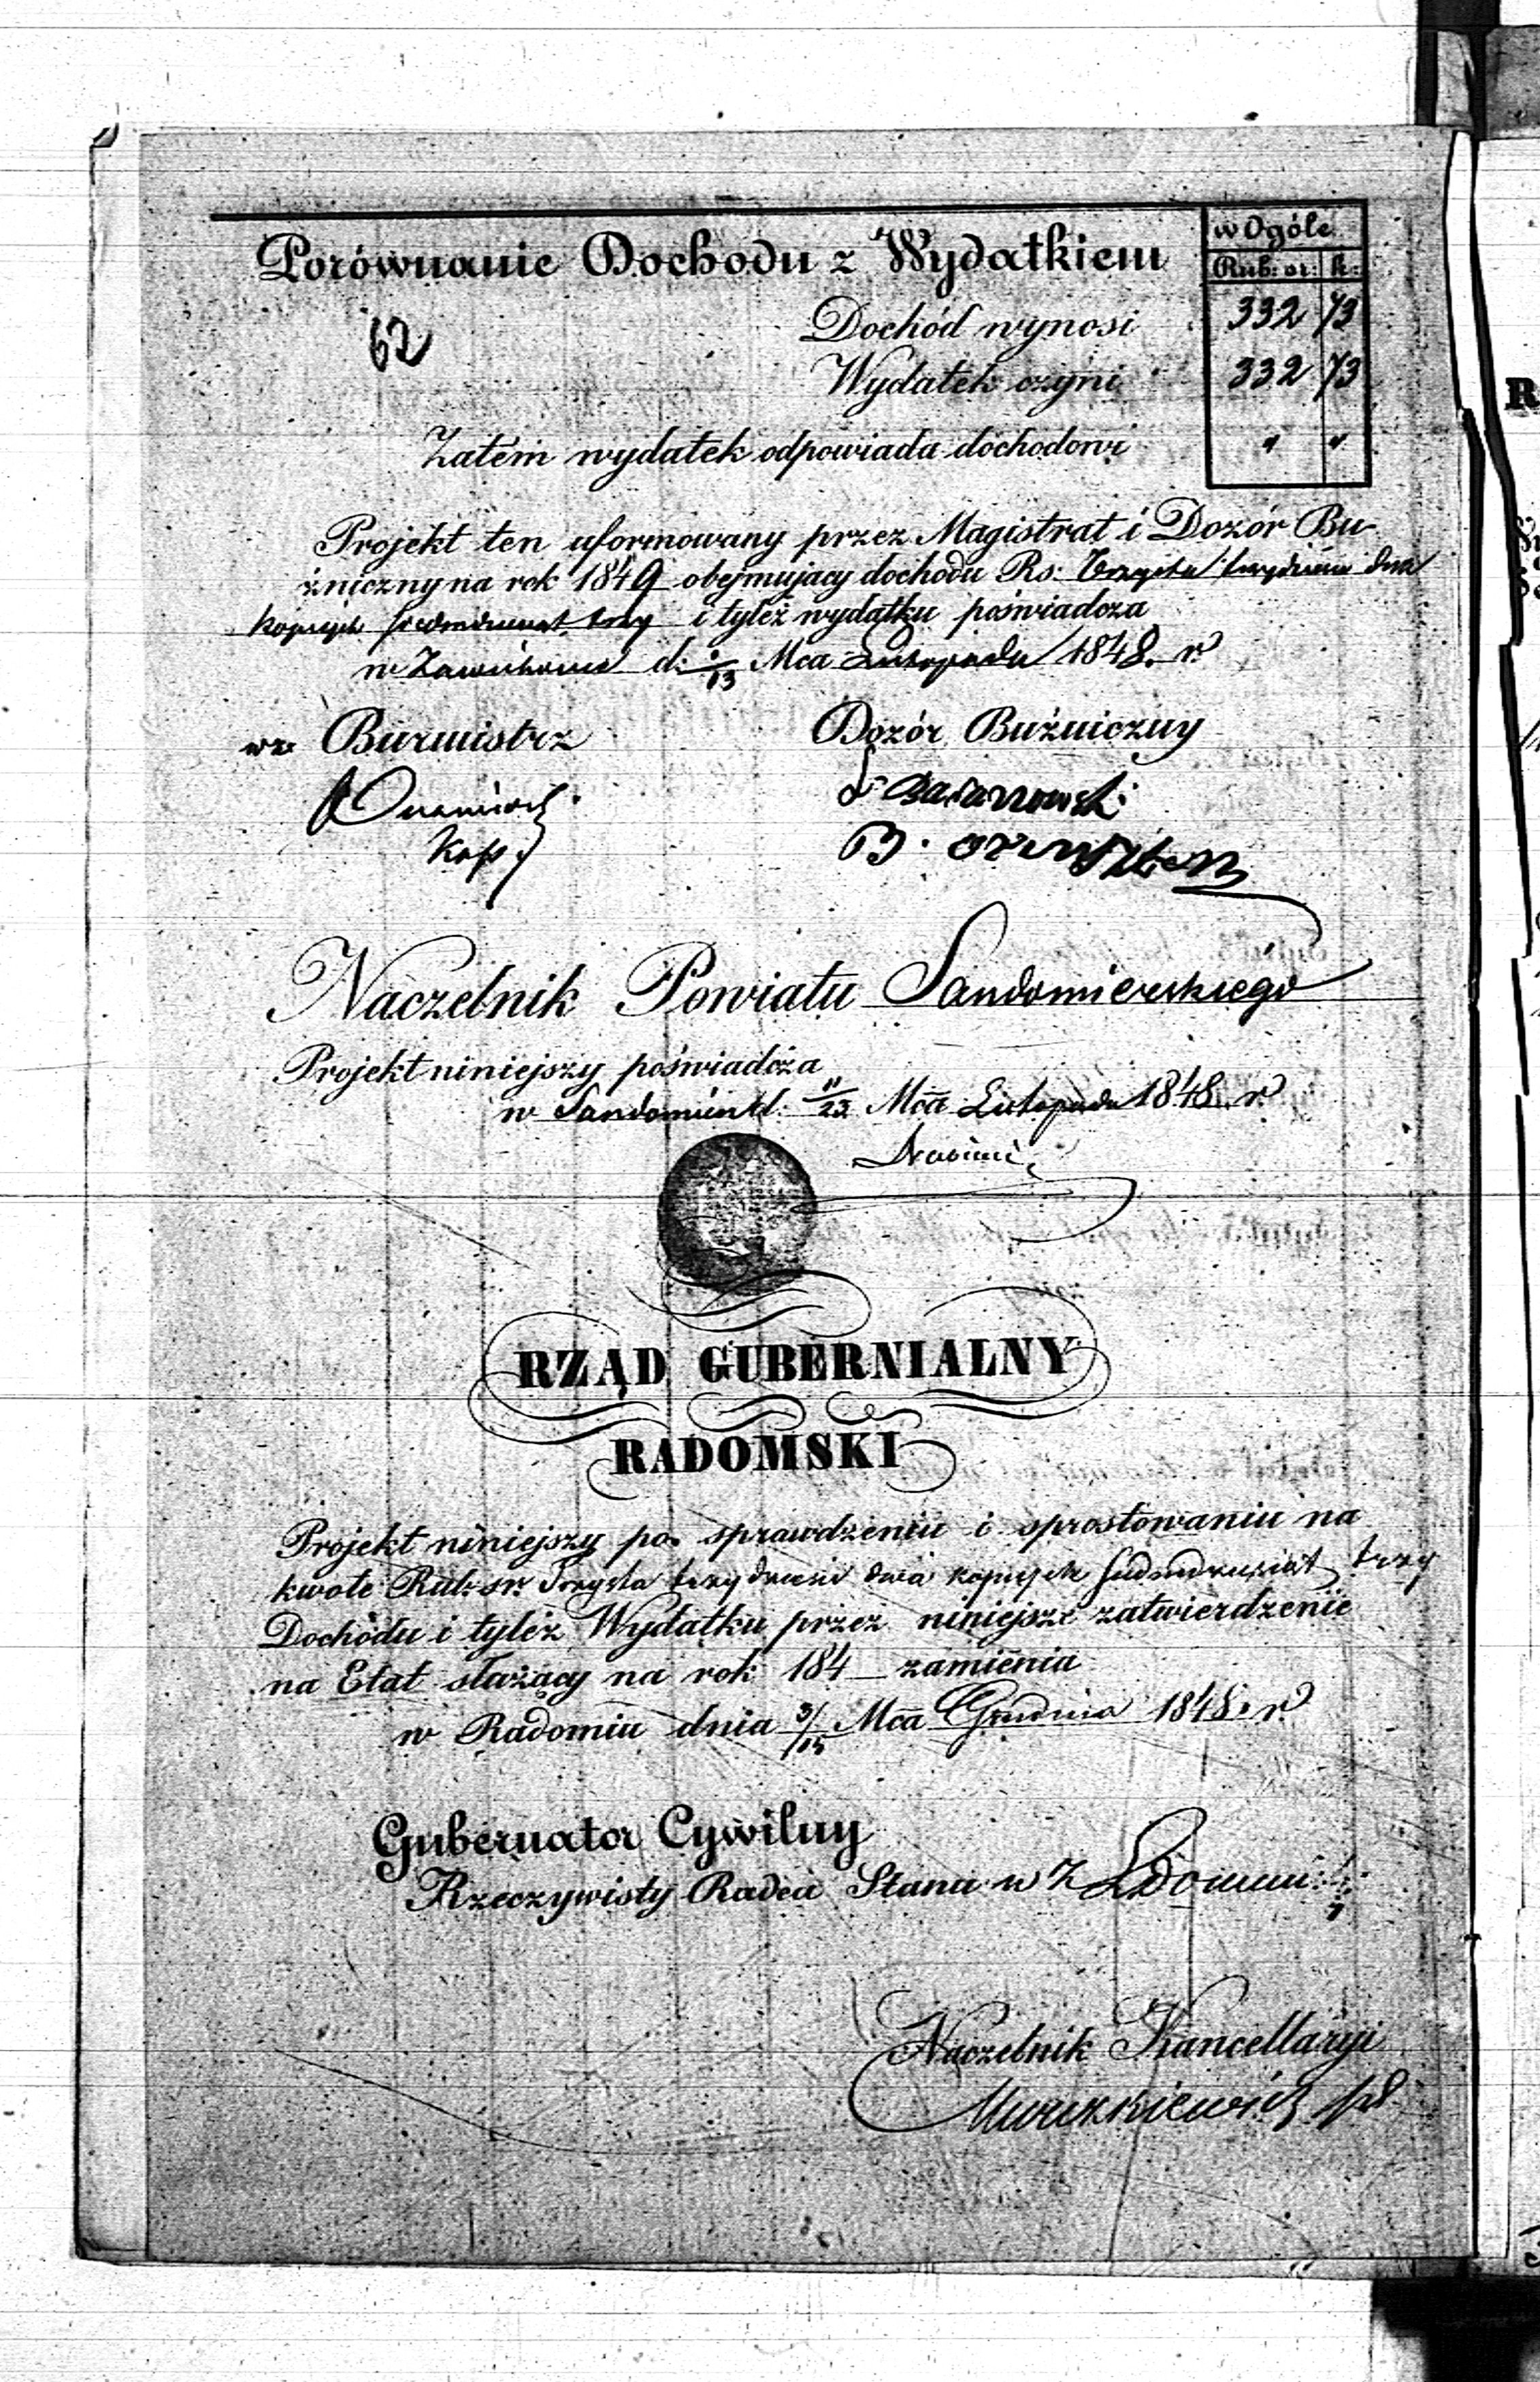 w Ogóle
Porównanie Dochodu z Wydatkiem
Rub: sr: k:
62
Dochód wynosi 332 73
Wydatek czyni 332 73
Zatem wydatek odpowiada dochodowi " "
Projekt ten uformowany przez Magistrat i Dozór Bu-
żniczny na rok 1849 obejmujący dochodu Rs. Trzysta trzydzieści dwa
kopiejek siedmdziesiąt trzy i tyleż wydatku poświadcza
w Zawichoście d: /13 Mca Listopada 1848. r.
wz Burmistrz Dozór Bużniczny
B.
Naczelnik Powiatu Sandomierskiego
Projekt niniejszy poświadcza
w Sandomierzu d. 11/23 Mca Listopada 1848. r.
RZĄD GUBERNIALNY
RADOMSKI
Projekt niniejszy po sprawdzeniu i sprostowaniu na
kwotę Rub: sr. Trzysta trzydzieści dwa kopiejek siedmdziesiąt trzy
Dochodu i tyleż Wydatku przez niniejsze zatwierdzenie
na Etat służący na rok 184 zamienia
w Radomiu dnia 3/15 Mca Grudnia 1848. r.
Gubernator Cywilny
Rzeczywisty Radca Stanu
Naczelnik Kancellaryi